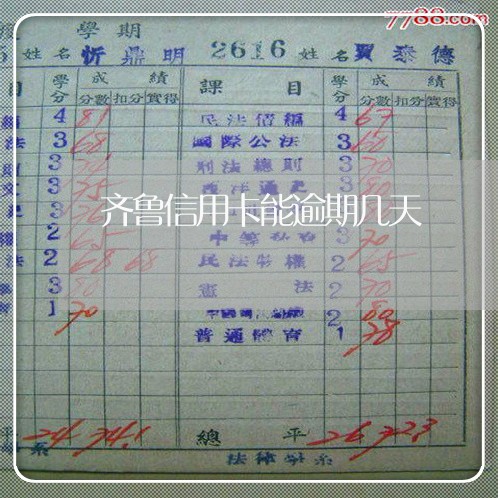 7788.com
度 學期
5 姓名 忻鼎明 2616 姓名 賈泰德
目 學分 成績 課目 學分 成績
分數 扣分 實得 分數 扣分 實得
4 81 民法債編 4 67
法 3 68 國際公法 3 60
3 刑法總則 3 70
3 75 3 80
3 3
齐鲁信用卡能逾期几天
2 65 3 70
法 2 68 68 民法物權 2 65
3 80 憲法 2 70
1 70 2 80
普通體育 1 78
平 24 74.1 總平 26 72.3
系 法律學系